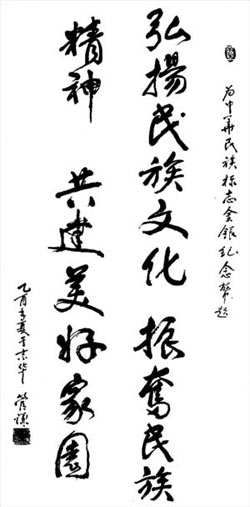 为中华民族标志金银纪念币题
弘揚民族文化 振奮民族
精神 共建美好家園
乙酉年夏于京华